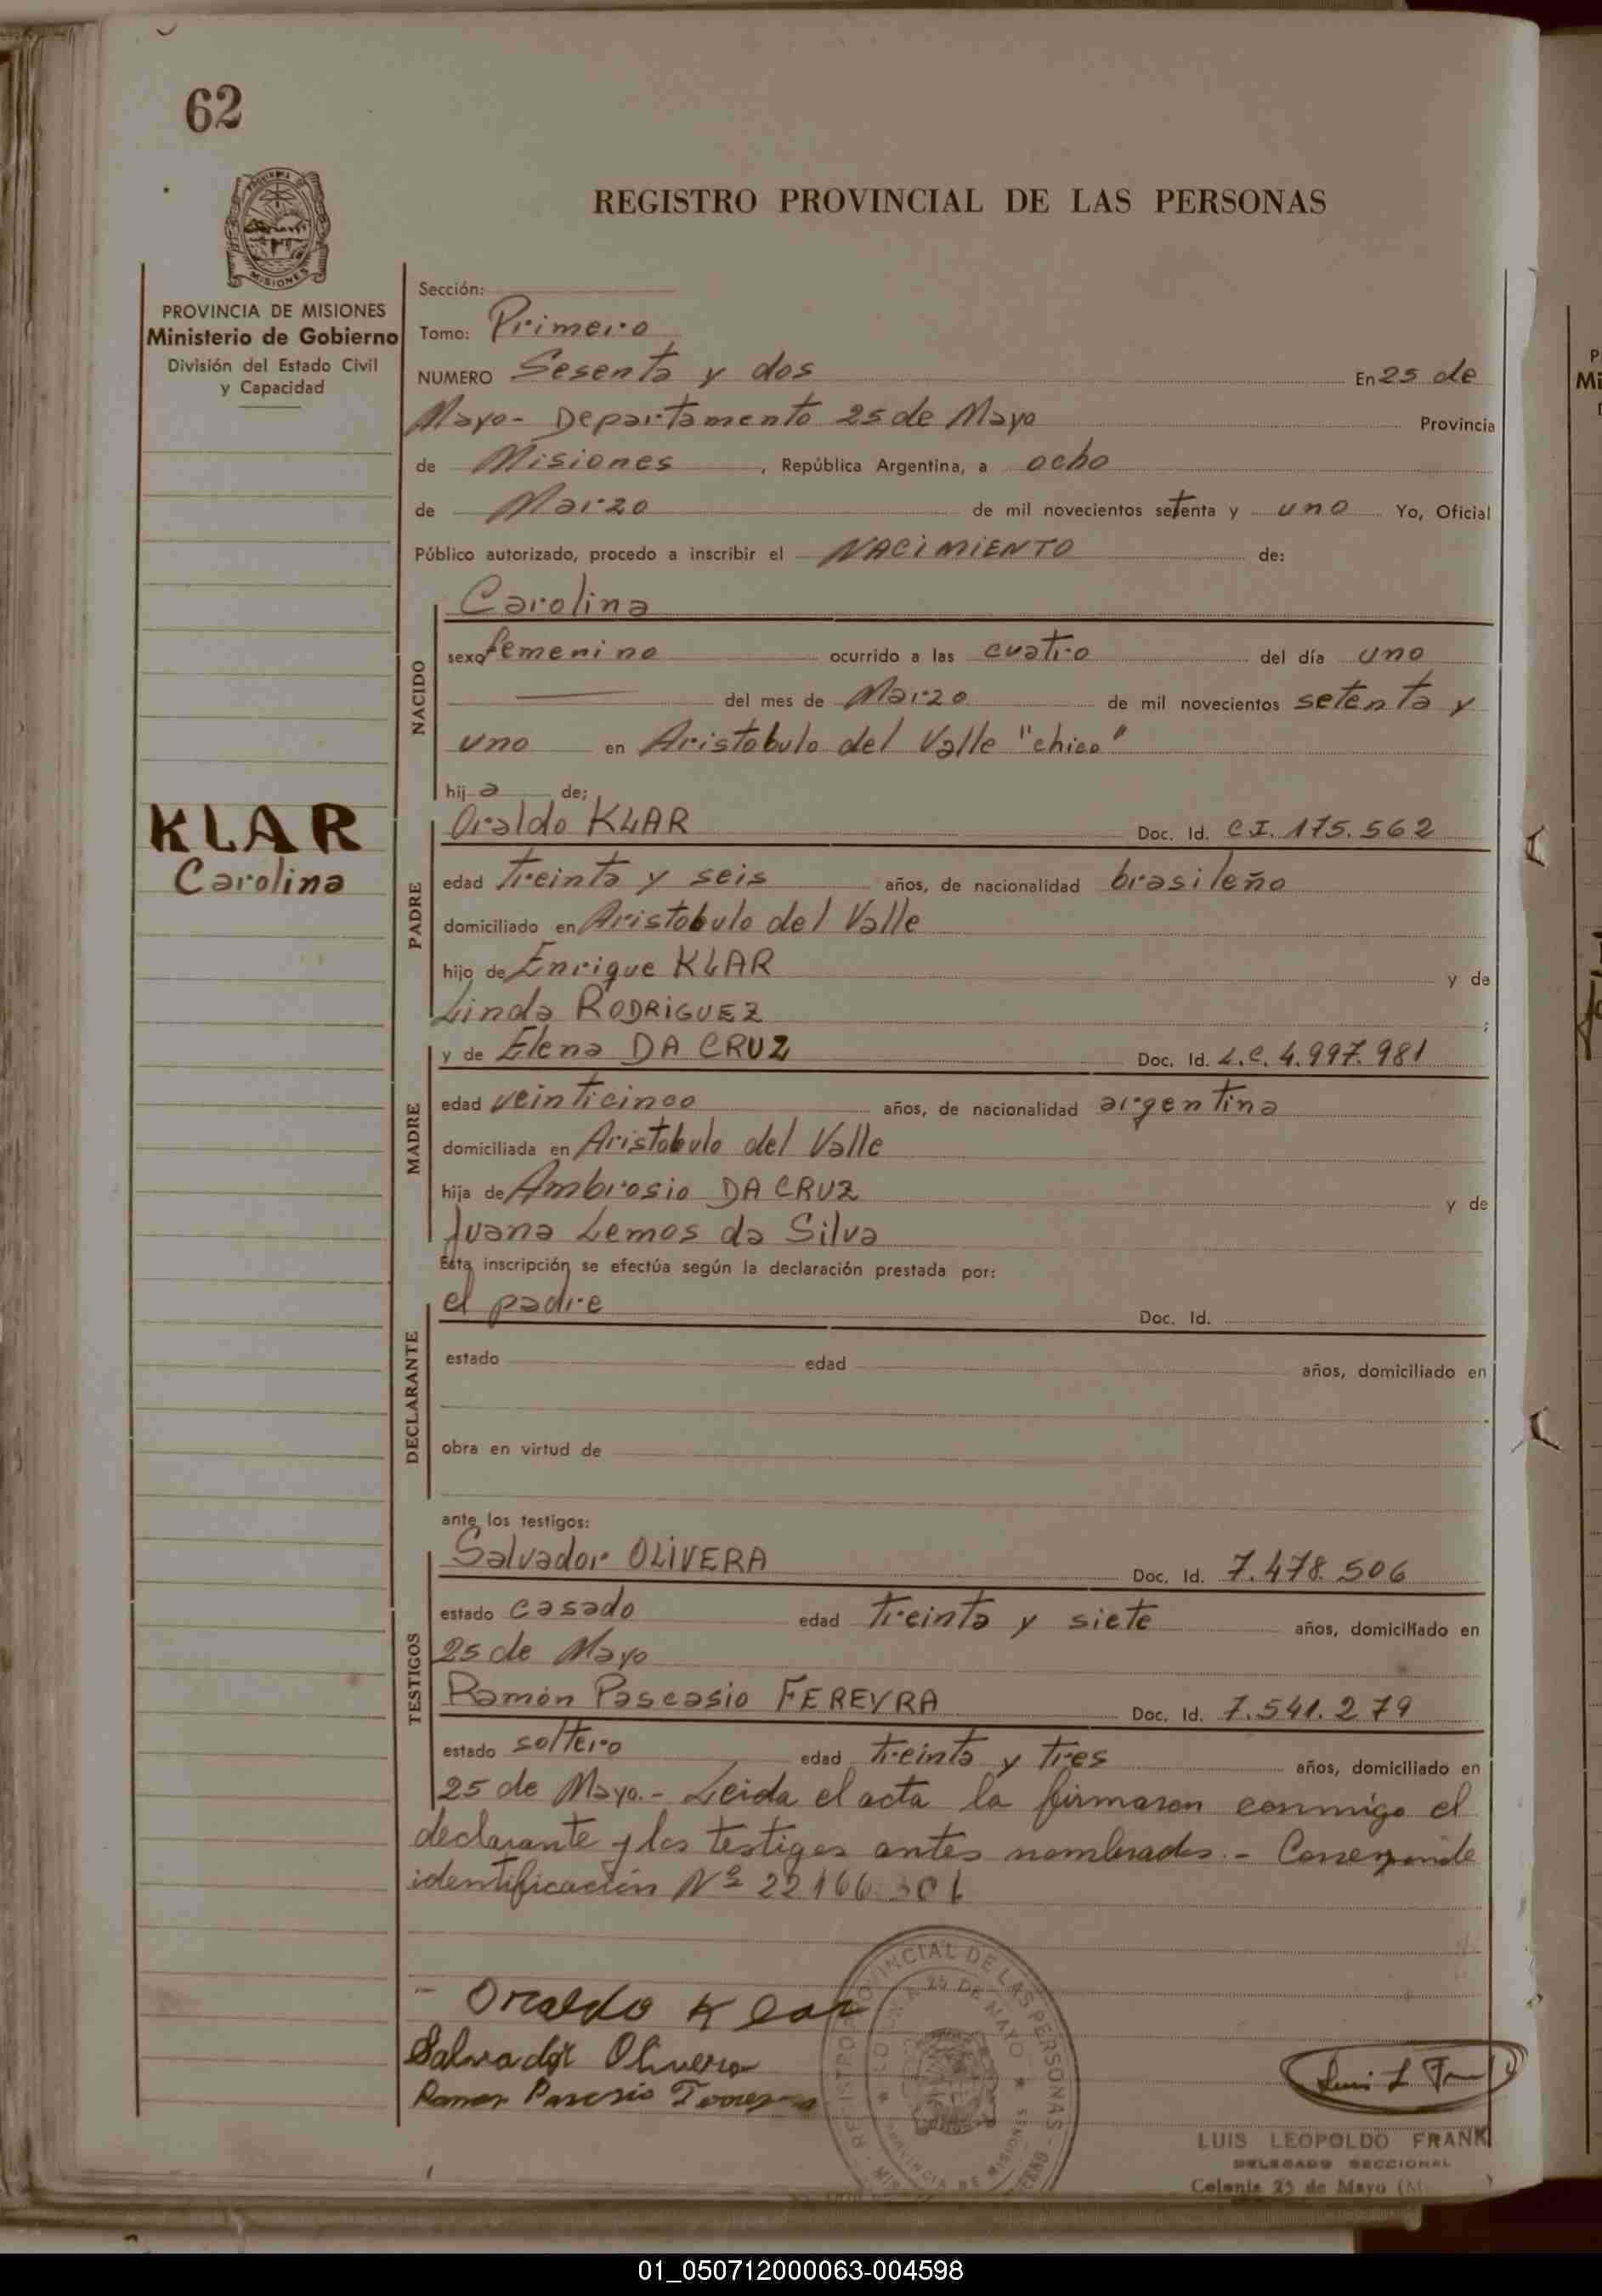 62
PROVINCIA DE MISIONES
Ministerio de Gobierno
División del Estado Civil
y Capacidad
REGISTRO PROVINCIAL DE LAS PERSONAS
Sección:
Tomo: Primero
NUMERO Sesenta y dos En 25 de
Mayo - Departamento 25 de Mayo Provincia
de Misiones, República Argentina, a ocho
de Marzo de mil novecientos setenta y uno Yo, Oficial
Público autorizado, procedo a inscribir el NACIMIENTO de:
NACIDO
Carolina
sexo femenino ocurrido a las cuatro del día uno
del mes de Marzo de mil novecientos setenta y
uno en Aristobulo del Valle "chico"
hija de:
KLAR
Carolina
PADRE
Oraldo KLAR Doc. Id. C.I. 175.562
edad treinta y seis años, de nacionalidad brasileño
domiciliado en Aristobulo del Valle
hijo de Enrique KLAR y de
Linda RODRIGUEZ ;
MADRE
y de Elena DA CRUZ Doc. Id. L.C. 4.997.981
edad veinticinco años, de nacionalidad argentina
domiciliada en Aristobulo del Valle
hija de Ambrosio DA CRUZ y de
Juana Lemos da Silva
Esta inscripción se efectúa según la declaración prestada por:
DECLARANTE
el padre Doc. Id.
estado edad años, domiciliado en
obra en virtud de
ante los testigos:
TESTIGOS
Salvador OLIVERA Doc. Id. 7.478.506
estado casado edad treinta y siete años, domiciliado en
25 de Mayo
Ramón Pascasio FEREYRA Doc. Id. 7.541.279
estado soltero edad treinta y tres años, domiciliado en
25 de Mayo.- Leida el acta la firmaron conmigo el
declarante y los testigos antes nombrados.- Corresponde
identificación Nº 22.166.301
Oraldo Klar
Salvador Olivera
Ramon Pascasio
REGISTRO PROVINCIAL DE LAS PERSONAS
COLONIA 25 DE MAYO
PROVINCIA DE MISIONES
LUIS LEOPOLDO FRANK
DELEGADO SECCIONAL
Colonia 25 de Mayo
01_050712000063-004598